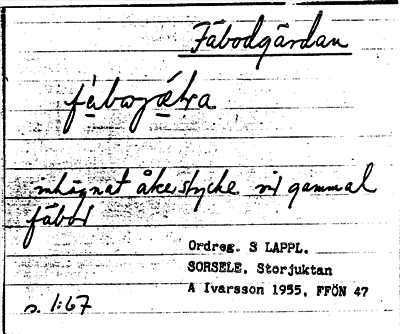 Fäbodgärdan
inhägnat åkerstycke vid gammal
fäbod
Ordreg. S LAPPL.
SORSELE, Storjuktan
A Ivarsson 1955, FFÖN 47
s. 1:67